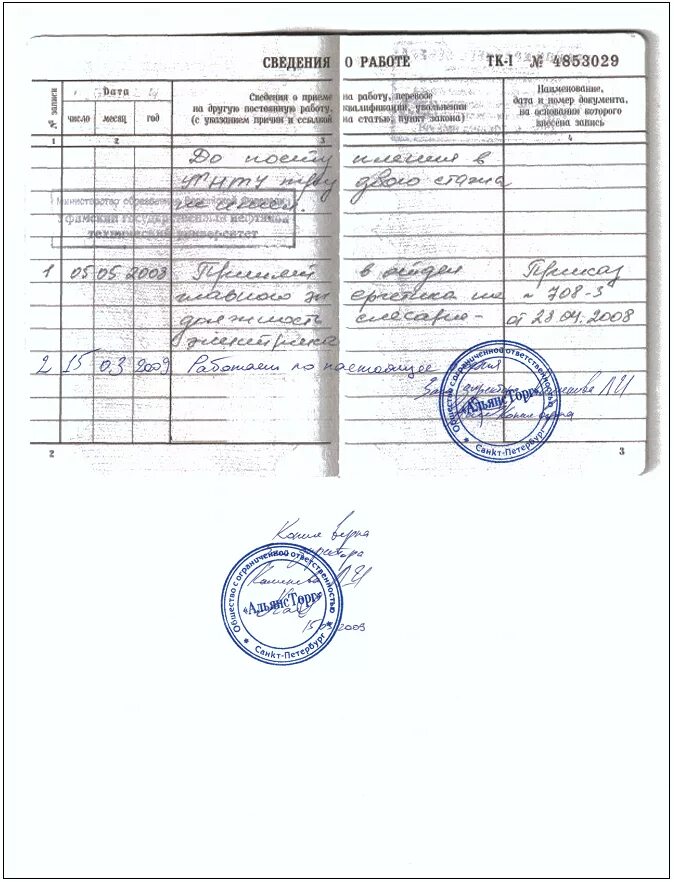 СВЕДЕНИЯ О РАБОТЕ ТК-I № 4853029
№ записи
Дата
число месяц год
Сведения о приеме на работу, переводе
на другую постоянную работу, квалификации, увольнении
(с указанием причин и ссылкой на статью, пункт закона)
Наименование,
дата и номер документа,
на основании которого
внесена запись
1 2 3 4
До поступления в
УГНТУ трудового стажа
не имел.
Министерство образования Российской Федерации
Уфимский государственный нефтяной
технический университет
1 05 05 2008 Принят в отдел Приказ
главного энергетика на № 708-3
должность слесаря- от 28 04. 2008
электрика
2 15 03 2009 Работает по настоящее время
Общество с ограниченной ответственностью
«АльянсТорг»
Санкт-Петербург
2 3
Копия верна
Общество с ограниченной ответственностью
«АльянсТорг»
Санкт-Петербург